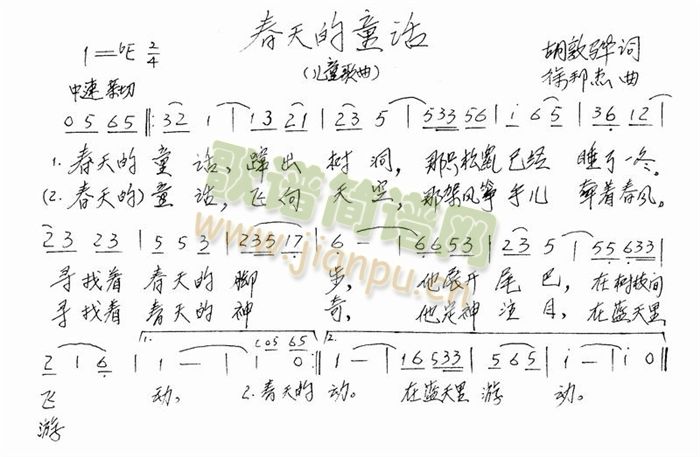 春天的童话
(儿童歌曲)
1=bE 2/4
胡敦骅 词
徐邦杰 曲
中速 亲切
0 5 6 5 |: 3 2 1 | 1 3 2 1 | 2 3 5 | 5 3 3 5 6 | i 6 5 | 3 6 1 2 |
1. 春天的 童 话, 蹿出 树 洞, 那只松鼠已经 睡了一冬。
(2. 春天的)童 话, 飞向 天 空, 那架风筝手儿 牵着春风。
2 3 2 3 | 5 5 3 | 2 3 5 1 7 | 6 - | 6 6 5 3 | 2 3 5 | 5 5 6 3 3 |
寻找着 春天的 脚 步, 他展开 尾 巴, 在树枝间
寻找着 春天的 神 奇, 他定神 注 目, 在蓝天里
2 1 6 | 1. 1 - | 1 0 (0 5 6 5 :| 2. 1 - | 1 6 5 3 3 | 5 6 5 | i - | i 0 ‖
飞 动, 2. 春天的 动。 在蓝天里 游 动。
游
歌谱简谱网
www.jianpu.cn